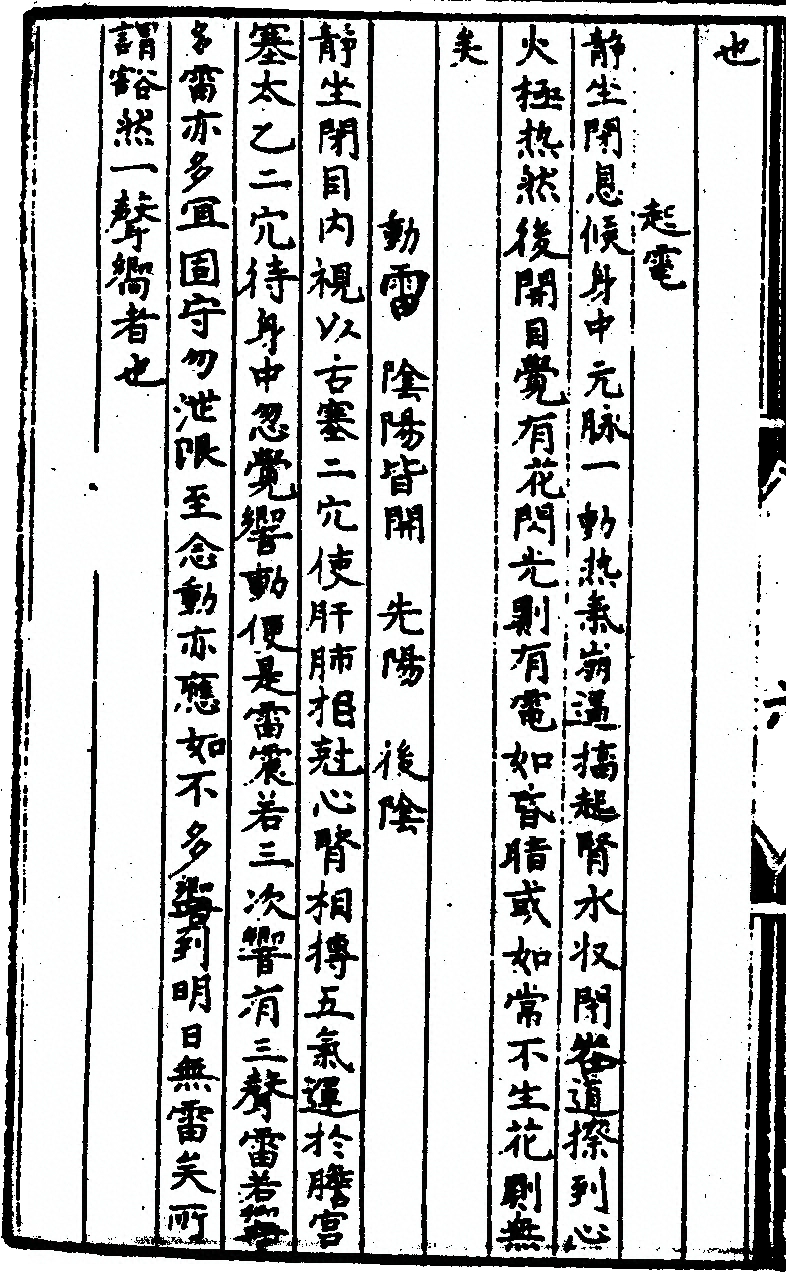 也
起電
静坐閉息候身中元脉一動热氣崩逼搐起腎水収閉谷道擦到心
火極热然後開目覺有花閃光則有電如昏暗或如常不生花則無
矣
動雷 陰陽皆開 先陽 後陰
静坐閉目内視以舌塞二穴使肝肺相尅心腎相摶五氣運於膽宫
塞太乙二穴待身中忽覺響動便是雷震若三次響有三聲雷若響
多雷亦多宜固守勿泄限至念動亦應如不多響到明日無雷矣所
謂豁然一聲嚮者也
六